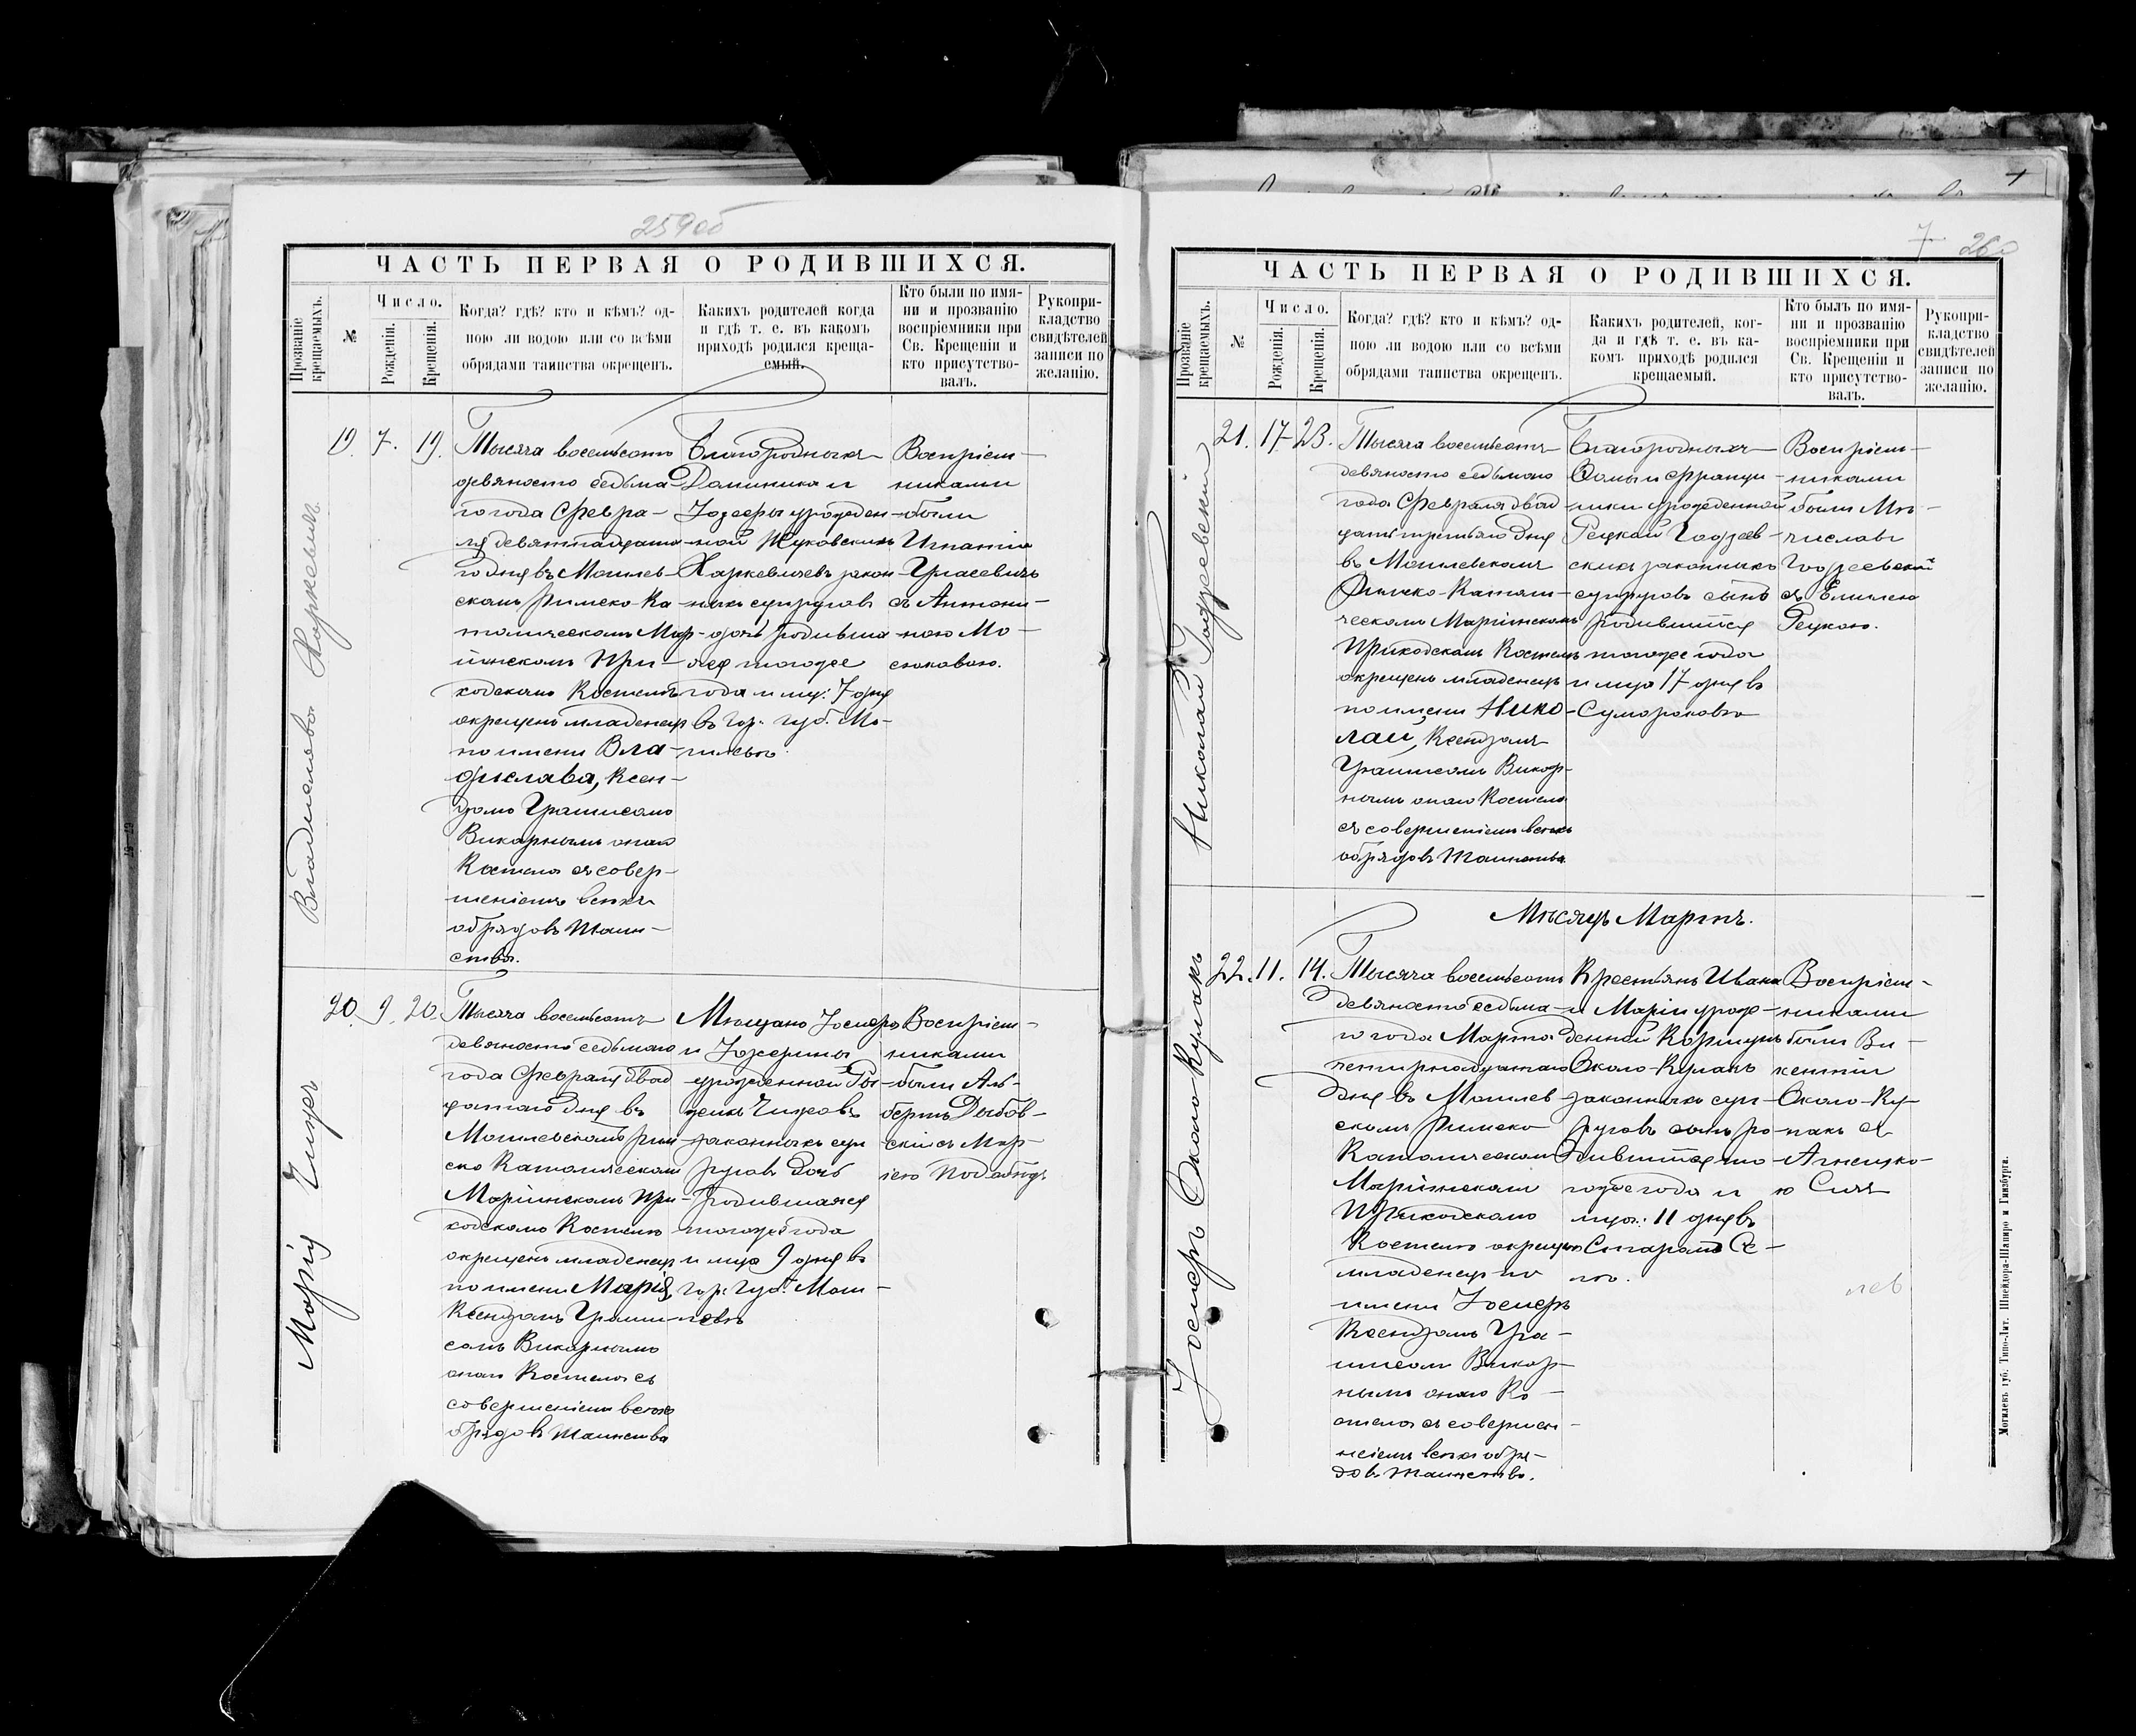 259об
ЧАСТЬ ПЕРВАЯ О РОДИВШИХСЯ.
Прозваніе крещаемыхъ.
№
Число.
Рожденія.
Крещенія.
Когда? гдѣ? кто и кѣмъ? од-
ною ли водою или со всѣми
обрядами таинства окрещенъ.
Какихъ родителей когда
и гдѣ т. е. въ какомъ
приходѣ родился креща-
емый.
Кто были по имя-
ни и прозванію
воспріемники при
Св. Крещеніи и
кто присутство-
валъ.
Рукопри-
кладство
свидѣтелей
записи по
желанію.
19. 7. 19.
Тысяча восемьсотъ
девяносто седьма-
го года Февра-
ля девятнадцата-
го дня въ Могилев-
скомъ Римско-Ка-
толическомъ Мар-
іинскомъ При-
ходскомъ Костелѣ
окрещенъ младенецъ
по имени Вла-
дислава, Ксен-
дзомъ
Викарнымъ онаго
Костела съ совер-
шеніемъ всѣхъ
обрядовъ Таин-
ства.
Благородныхъ
Доминика и
Іозефы урожден-
ной Жуковскихъ
Харкевичевъ закон-
ныхъ супруговъ
дочь, родивша-
яся того же
года и мца: 7 дня
въ гор. губ. Мо-
гилевѣ.
Воспріем-
никами
были
Игнатій
съ Антони-
ною
20. 9. 20.
Марія
Тысяча восемьсотъ
девяносто седьмаго
года Февраля двад-
цатаго дня въ
Могилевскомъ Рим-
ско Католическомъ
Маріинскомъ При-
ходскомъ Костелѣ
окрещенъ младенецъ
по имени Марія,
Ксендзомъ
Викарнымъ
онаго Костела съ
совершеніемъ всѣхъ
обрядовъ Таинства
Мѣщанъ Іосифа
и Іозефины
урожденной
законныхъ суп-
руговъ дочь
родившаяся
того же года
и мца 9 дня въ
гор. губ. Моги-
левѣ
Воспріем-
никами
были Аль-
бертъ Дыбов-
скій съ Мар-
іею
7 260
ЧАСТЬ ПЕРВАЯ О РОДИВШИХСЯ.
Прозваніе крещаемыхъ.
№
Число.
Рожденія.
Крещенія.
Когда? гдѣ? кто и кѣмъ? од-
ною ли водою или со всѣми
обрядами таинства окрещенъ.
Какихъ родителей, ког-
да и гдѣ т. е. въ ка-
комъ приходѣ родился
крещаемый.
Кто былъ по имя-
ни и прозванію
воспріемники при
Св. Крещеніи и
кто присутство-
валъ.
Рукопри-
кладство
свидѣтелей
записи по
желанію.
21. 17. 23.
Николай Годзевскій
Тысяча восемьсотъ
девяносто седьмаго
года Февраля двад-
цать третьяго дня
въ Могилевскомъ
Римско-Католи-
ческомъ Маріинскомъ
Приходскомъ Костелѣ
окрещенъ младенецъ
по имени Нико-
лай, Ксендзомъ
Викар-
нымъ онаго Костела
съ совершеніемъ всѣхъ
обрядовъ Таинства.
Благородныхъ
Ѳомы и Франци-
шки урожденной
Рецкой Годзев-
скихъ законныхъ
супруговъ сынъ
родившійся
того же года
и мца 17 дня въ
Воспріем-
никами
были Ме-
числавъ
Годзевскій
съ Емилею
Рецкою.
Мѣсяцъ Мартъ.
22. 11. 14.
Іосифъ Около-Кулакъ
Тысяча восемьсотъ
девяносто седьма-
го года Марта
четырнадцатаго
дня въ Могилев-
скомъ Римско
Католическомъ
Маріинскомъ
Приходскомъ
Костелѣ окрещенъ
младенецъ по
имени Іосифъ
Ксендзомъ
Викар-
нымъ онаго Ко-
стела съ соверше-
ніемъ всѣхъ обря-
довъ таинства.
Крестьянъ Ивана
и Маріи урож-
денной Коршунъ
Около-Кулакъ
законныхъ суп-
руговъ сынъ ро-
дившійся то-
го же года и
мца: 11 дня въ
Старомъ Се-
лѣ.
Воспріем-
никами
были Ви-
кентій
Около-Ку-
лакъ съ
Агнешко-
ю
лев
Могилевъ губ. Типо-Лит. Шнейдора-Шапиро и Гинзбурга.